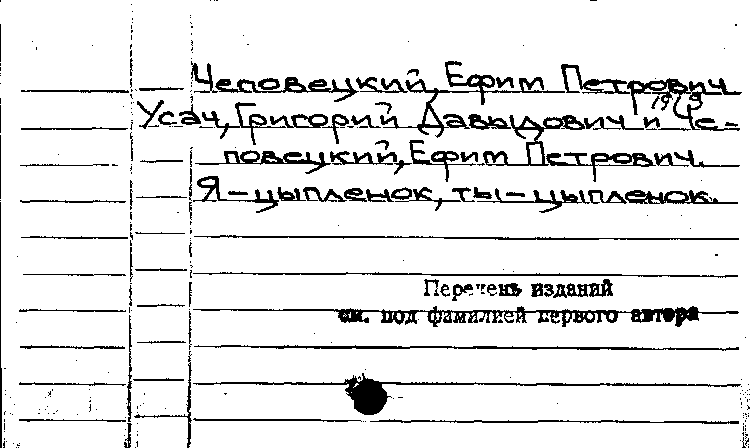 Чеповецкий, Ефим Петрович
1919
Усач, Григорий Давыдович и Че-
повецкий, Ефим Петрович.
Я – цыпленок, ты – цыпленок.
Перечень изданий
см. под фамилией первого автора